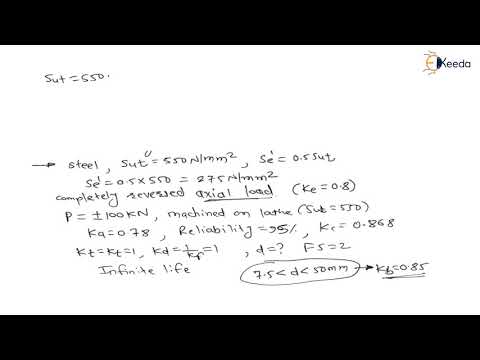 EKeeda
Sut = 550.
→ steel, Sut" = 550 N/mm², Se' = 0.5 Sut
Se' = 0.5 × 550 = 275 N/mm²
completely reversed axial load (Ke = 0.8)
P = ± 100 KN, machined on lathe (Sut = 550)
Ka = 0.78, Reliability = 95%, Kc = 0.868
Kt = Kt = 1, Kd = 1/Kf = 1, d = ? FS = 2
Infinite life 7.5 < d < 50mm → Kb = 0.85